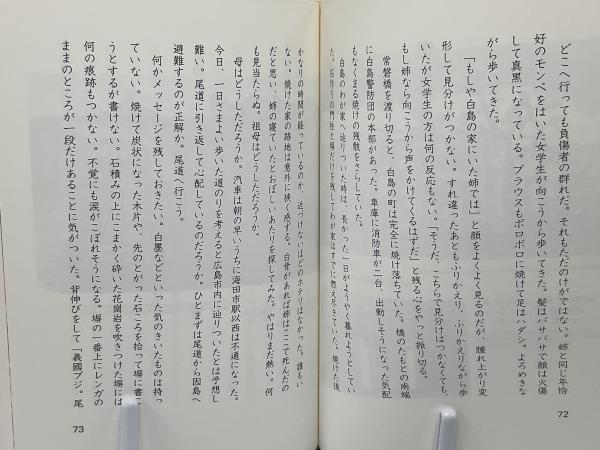 どこへ行っても負傷者の群れだ。それもただのけがではない。姉と同じ年恰
好のモンペをはいた女学生が向こうから歩いてきた。髪はバサバサで顔は火傷
して真黒になっている。ブラウスもボロボロに焼けて足はハダシ。よろめきな
がら歩いてきた。
「もしや白島の家にいた姉では」と顔をよくよく見るのだが、腫れ上がり変
形して見分けがつかない。すれ違ったあともふりかえり、ふりかえりながら歩
いたが女学生の方は何の反応もない。「そうだ、こちらで見分けはつかなくても、
もし姉なら向こうから声をかけてくるはずだ」と残る心をやっと振り切る。
常磐橋を渡り切ると、白島の町は完全に焼け落ちていた。橋のたもとの南端
に白島警防団の本部があった。車庫に消防車が二台、出動しそうになった気配
もなくまる焼けの残骸をさらしていた。
白島のわが家へ辿りついた時は、長かった一日がようやく暮れようとしてい
た。石作りの門柱と塀だけを残してわが家はすでに燃え尽きていた。焼けた後
72
かなりの時間が経っているのか、近づけないほどのホテリはなかった。誰もい
ない。焼けた家の跡地は意外に狭く感ずる。白骨があれば姉はここで死んだの
だと思い、姉の寝ていたとおぼしいあたりを探してみた。やはりまだ熱い。何
も見当たらぬ。祖母はどうしただろうか。
母はどうしただろうか。汽車は朝の早いうちに海田市駅以西は不通になった。
今日、一日さまよい歩いた道のりを考えると広島市内に辿りついたとは予想し
難い。尾道に引き返して心配しているのだろうか。ひとまずは尾道から因島へ
避難するのが正解か。尾道へ行こう。
何かメッセージを残しておきたい。白墨などといった気のきいたものは持っ
ていない。焼けて炭状になった木片や、先のとがった石ころを拾って塀に書こ
うとするが書けない。石積みの上にこまかく砕いた花崗岩を吹きつけた塀には
何の痕跡もつかない。不覚にも涙がこぼれそうになる。塀の一番上にレンガの
ままのところが一段だけあることに気がついた。背伸びをして「義國ブジ。尾
73